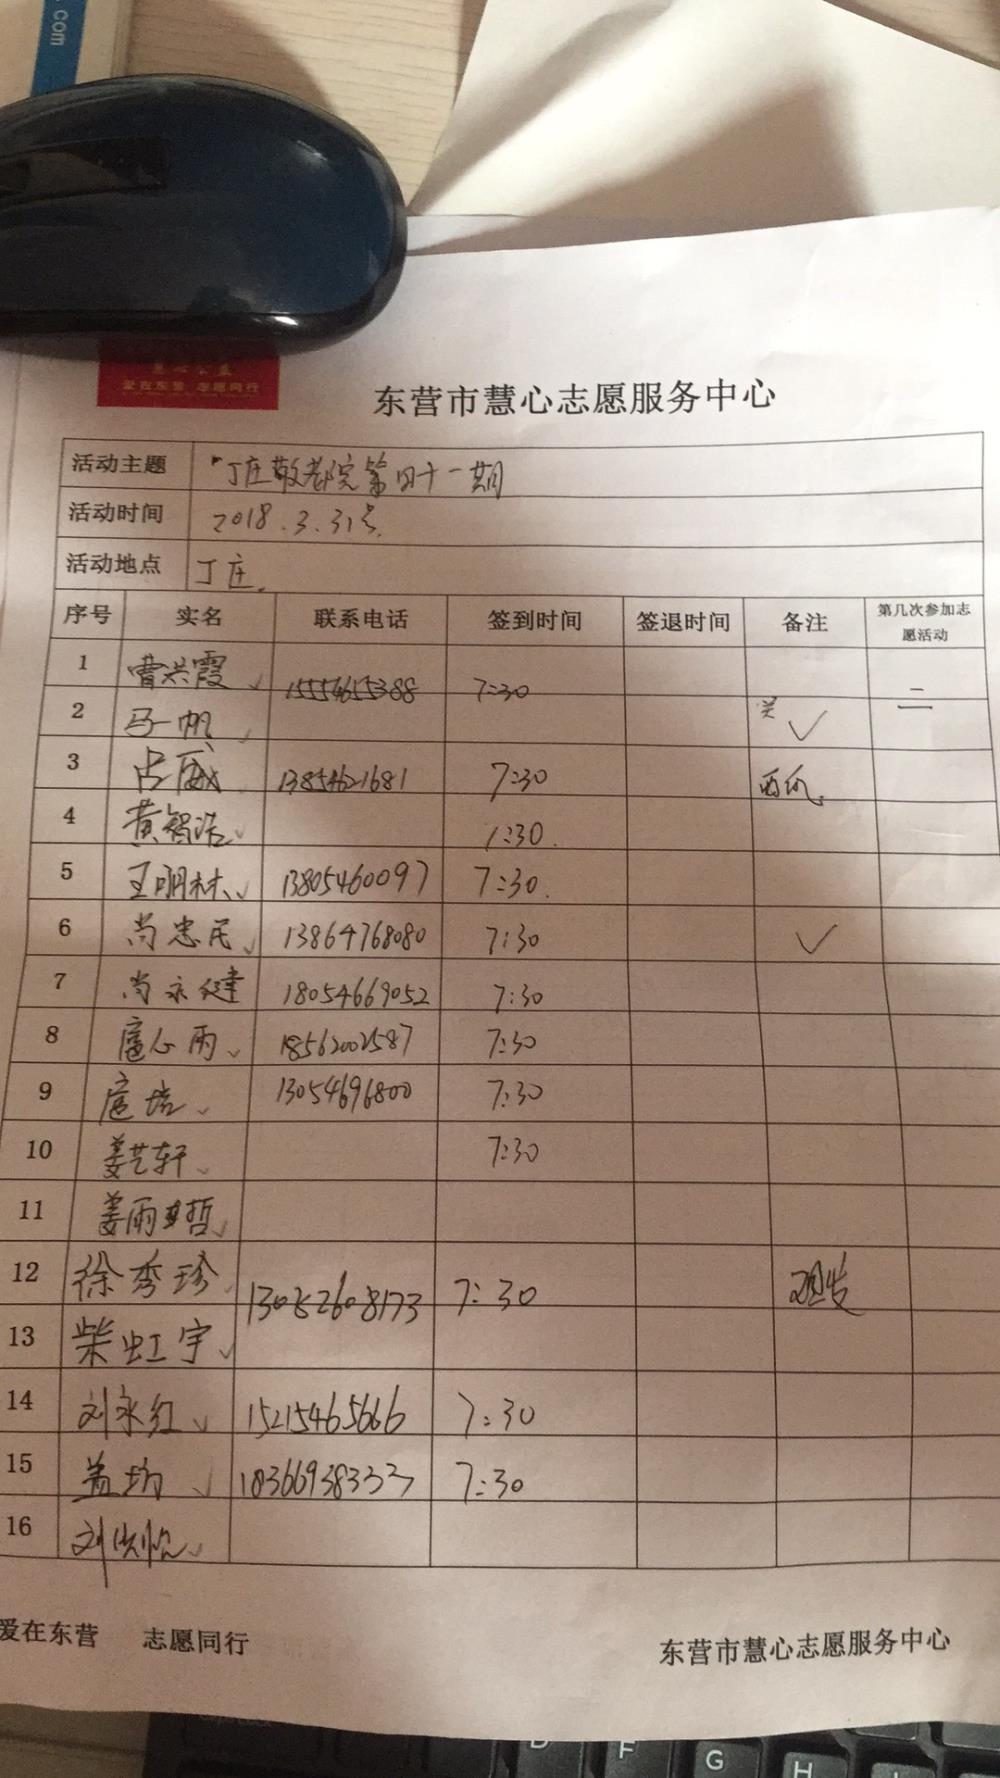 .com
慧心公益
爱在东营 志愿同行
东营市慧心志愿服务中心
活动主题 丁庄敬老院第四十一期
活动时间 2018.3.31号.
活动地点 丁庄.
序号 实名 联系电话 签到时间 签退时间 备注 第几次参加志愿活动
1 曹洪霞 ✓ 15554655388 7:30 二
2 马一帆 ✓
3 占威 13854621681 7:30
4 黄智浩 ✓ 7:30.
5 王明林 ✓ 13805460097 7:30.
6 尚忠民 ✓ 13864768080 7:30 ✓
7 尚永健 18054669052 7:30
8 扈心雨 ✓ 18562002587 7:30
9 扈培 ✓ 13054696800 7:30
10 姜艺轩 ✓ 7:30
11 姜雨哲 ✓
12 徐秀珍 ✓ 7:30 理发
13 柴虹宇 ✓
14 刘永红 ✓ 15215465666 7:30
15 盖均 ✓ 18366938333 7:30
16 刘 ✓
爱在东营 志愿同行 东营市慧心志愿服务中心
D F G H